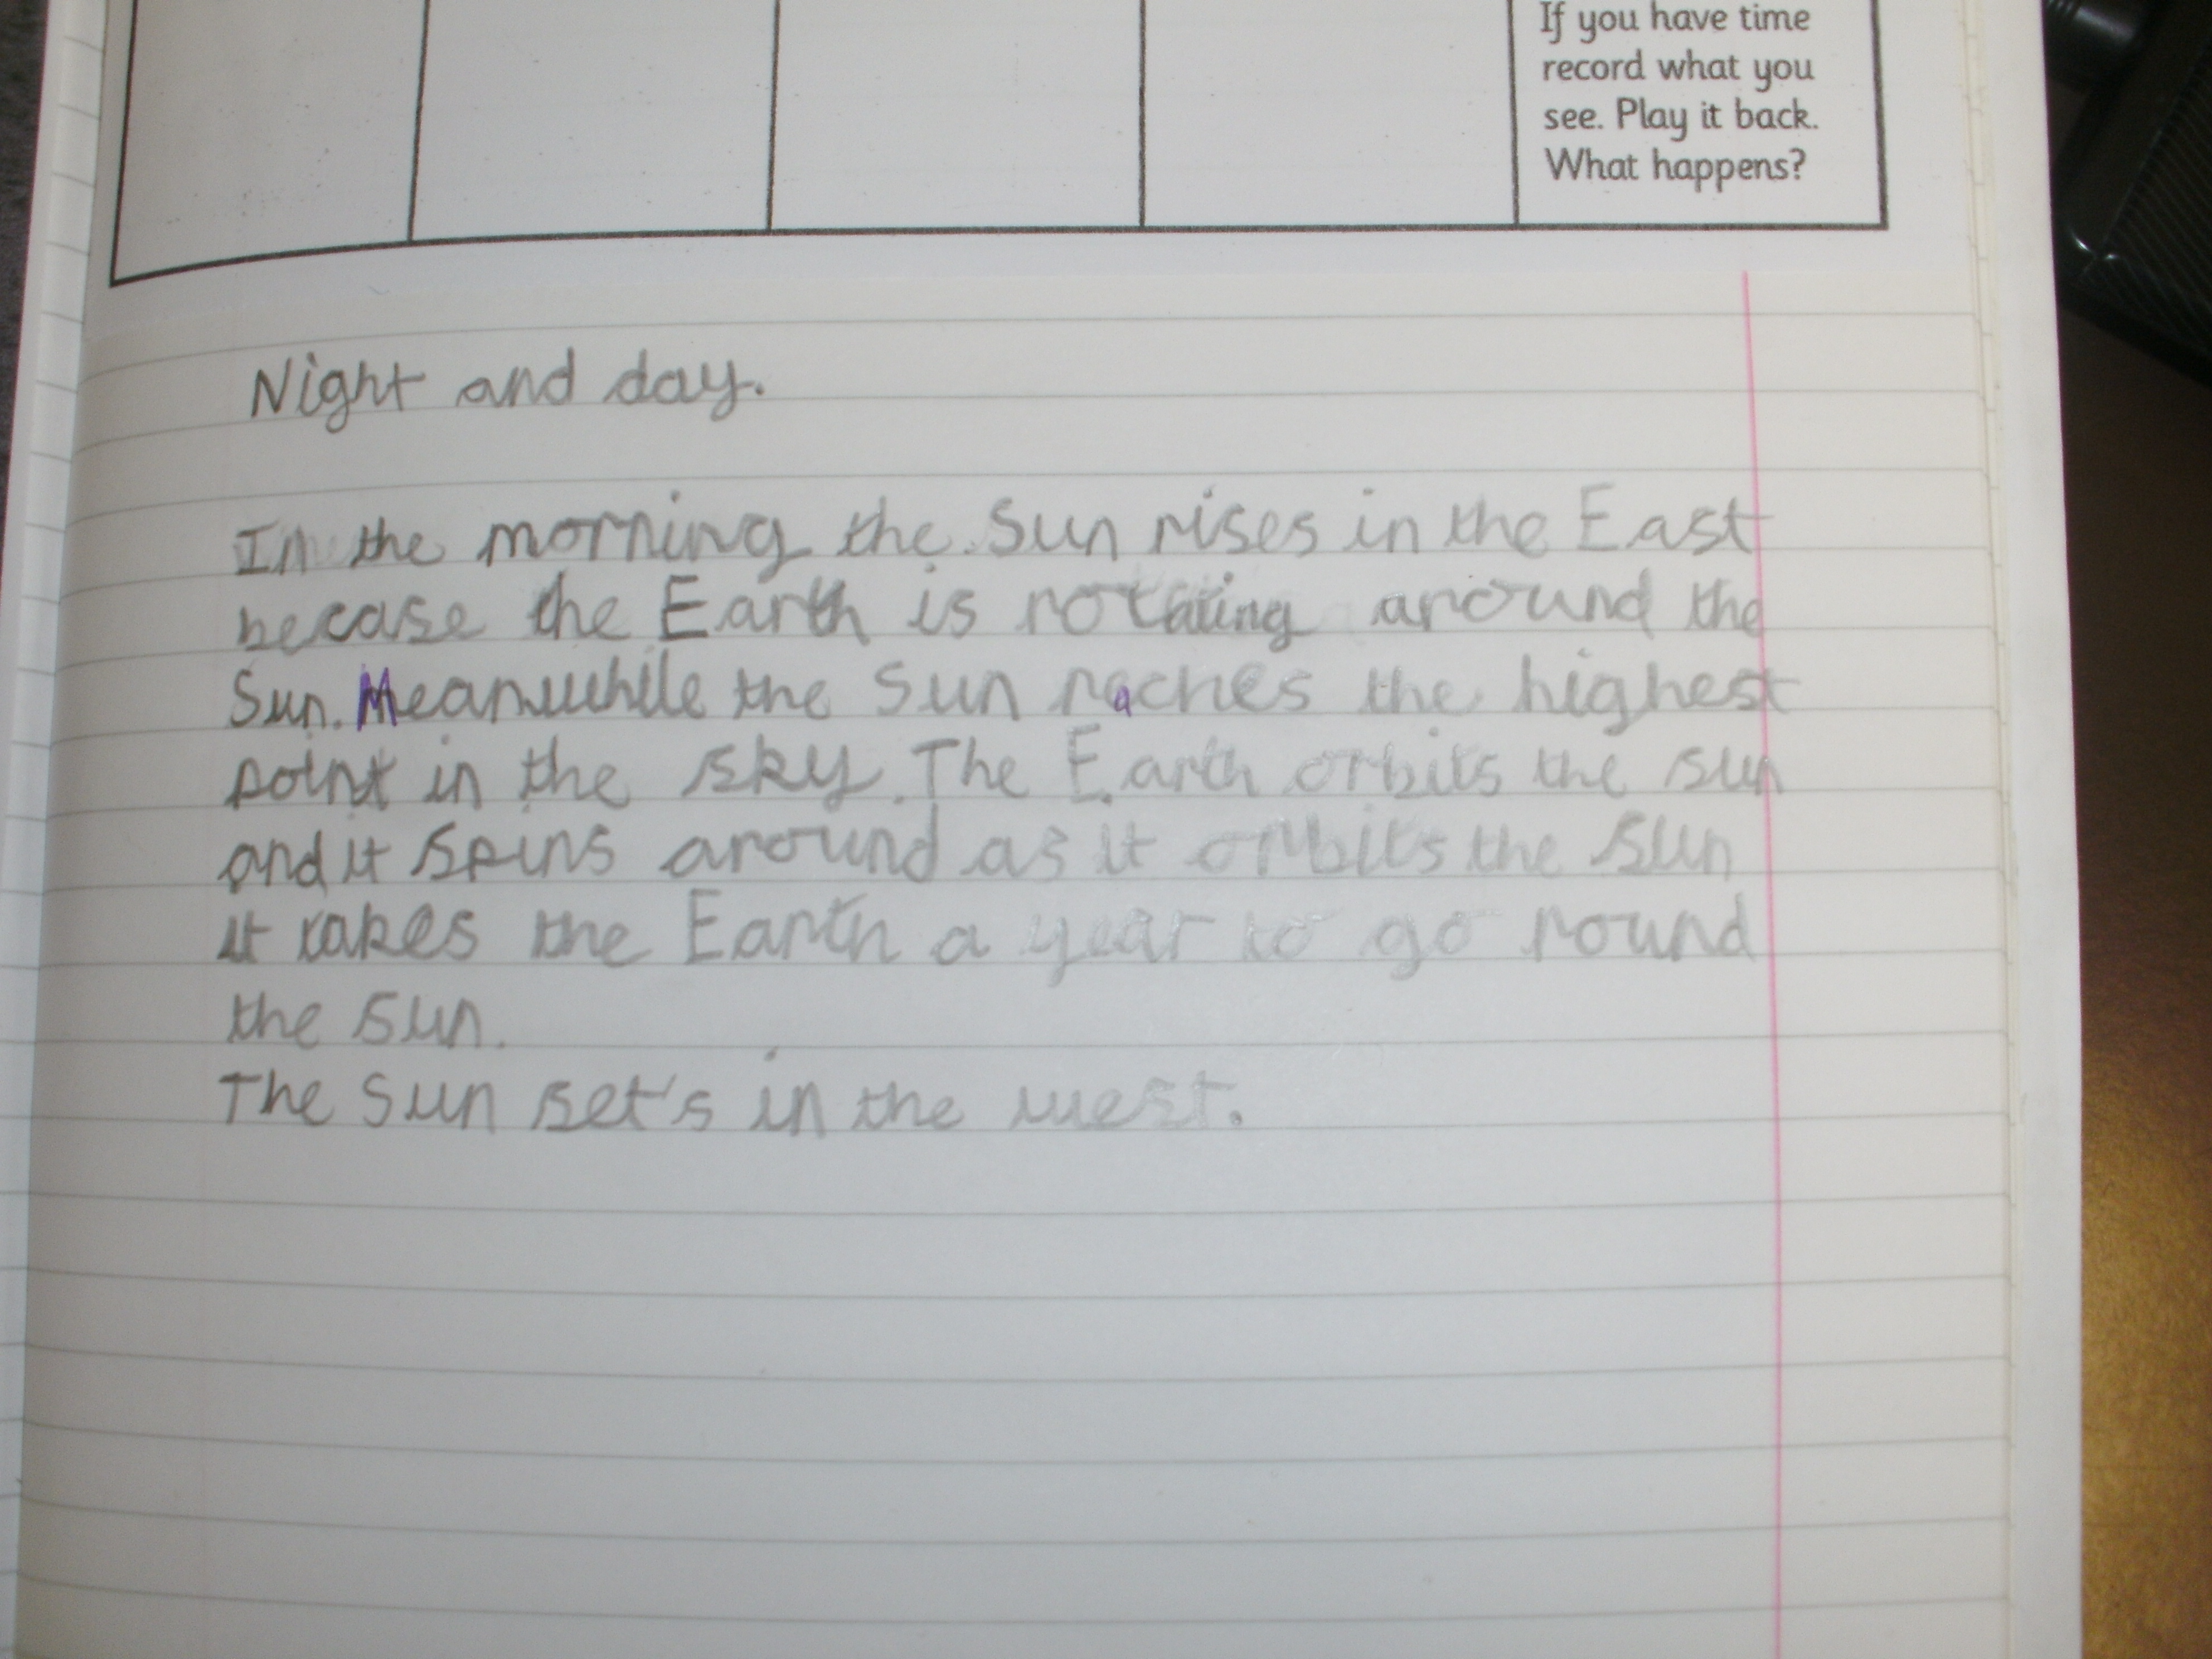 If you have time
record what you
see. Play it back.
What happens?
Night and day.
In the morning the Sun rises in the East
becase the Earth is rotating around the
Sun. Meanwhile the Sun raches the highest
point in the sky. The Earth orbits the sun
and it spins around as it orbits the sun
it takes the Earth a year to go round
the sun.
The Sun set's in the west.